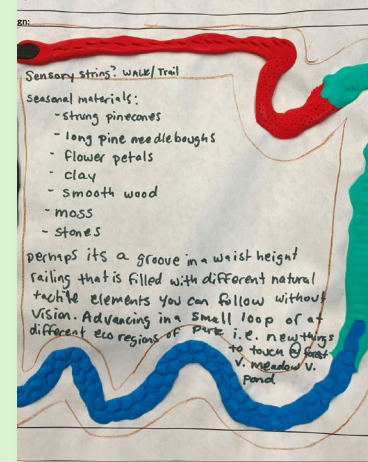 gn:
Sensory string? WALK/Trail
seasonal materials:
- strung pinecones
- long pine needle boughs
- flower petals
- clay
- smooth wood
- moss
- stones
perhaps its a groove in a waist height
railing that is filled with different natural
tactile elements you can follow without
vision. Advancing in a small loop of at
different eco regions of park i.e. new things
to touch @ forest
v. meadow v.
pond